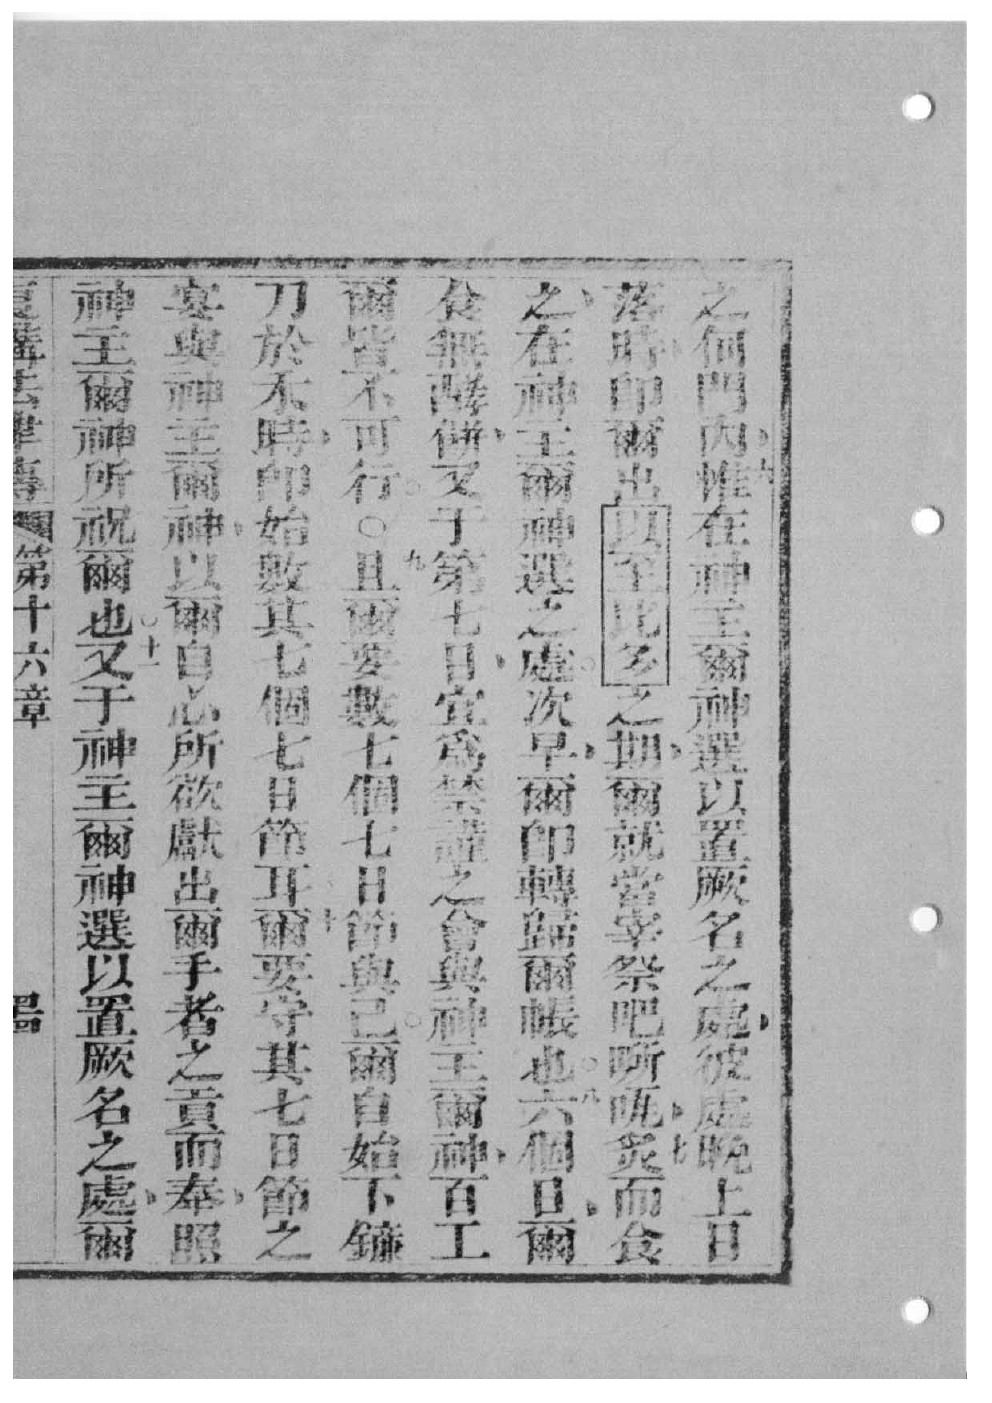 之何門內惟在神主爾神選以置厥名之處彼處晚上日
落時卽爾出以至比多之期爾就當宰祭吧𠵽𠯈炙而食
之在神主爾神選之處次早爾卽轉歸爾帳也六個日爾
食無酵餅又于第七日宜爲禁謹之會與神主爾神百工
爾皆不可行○且爾要數七個七日節與己爾自始下鐮
刀於禾時卽始數其七個七日節耳爾要守其七日節之
宴與神主爾神以爾自心所欲獻出爾手者之貢而奉照
神主爾神所祝爾也又于神主爾神選以置厥名之處爾
復講法律傳 第十六章